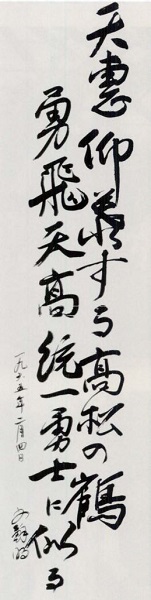 天恵仰慕する高松の鶴
勇飛天高統一勇士に似る
一九六五年二月四日
文鮮明